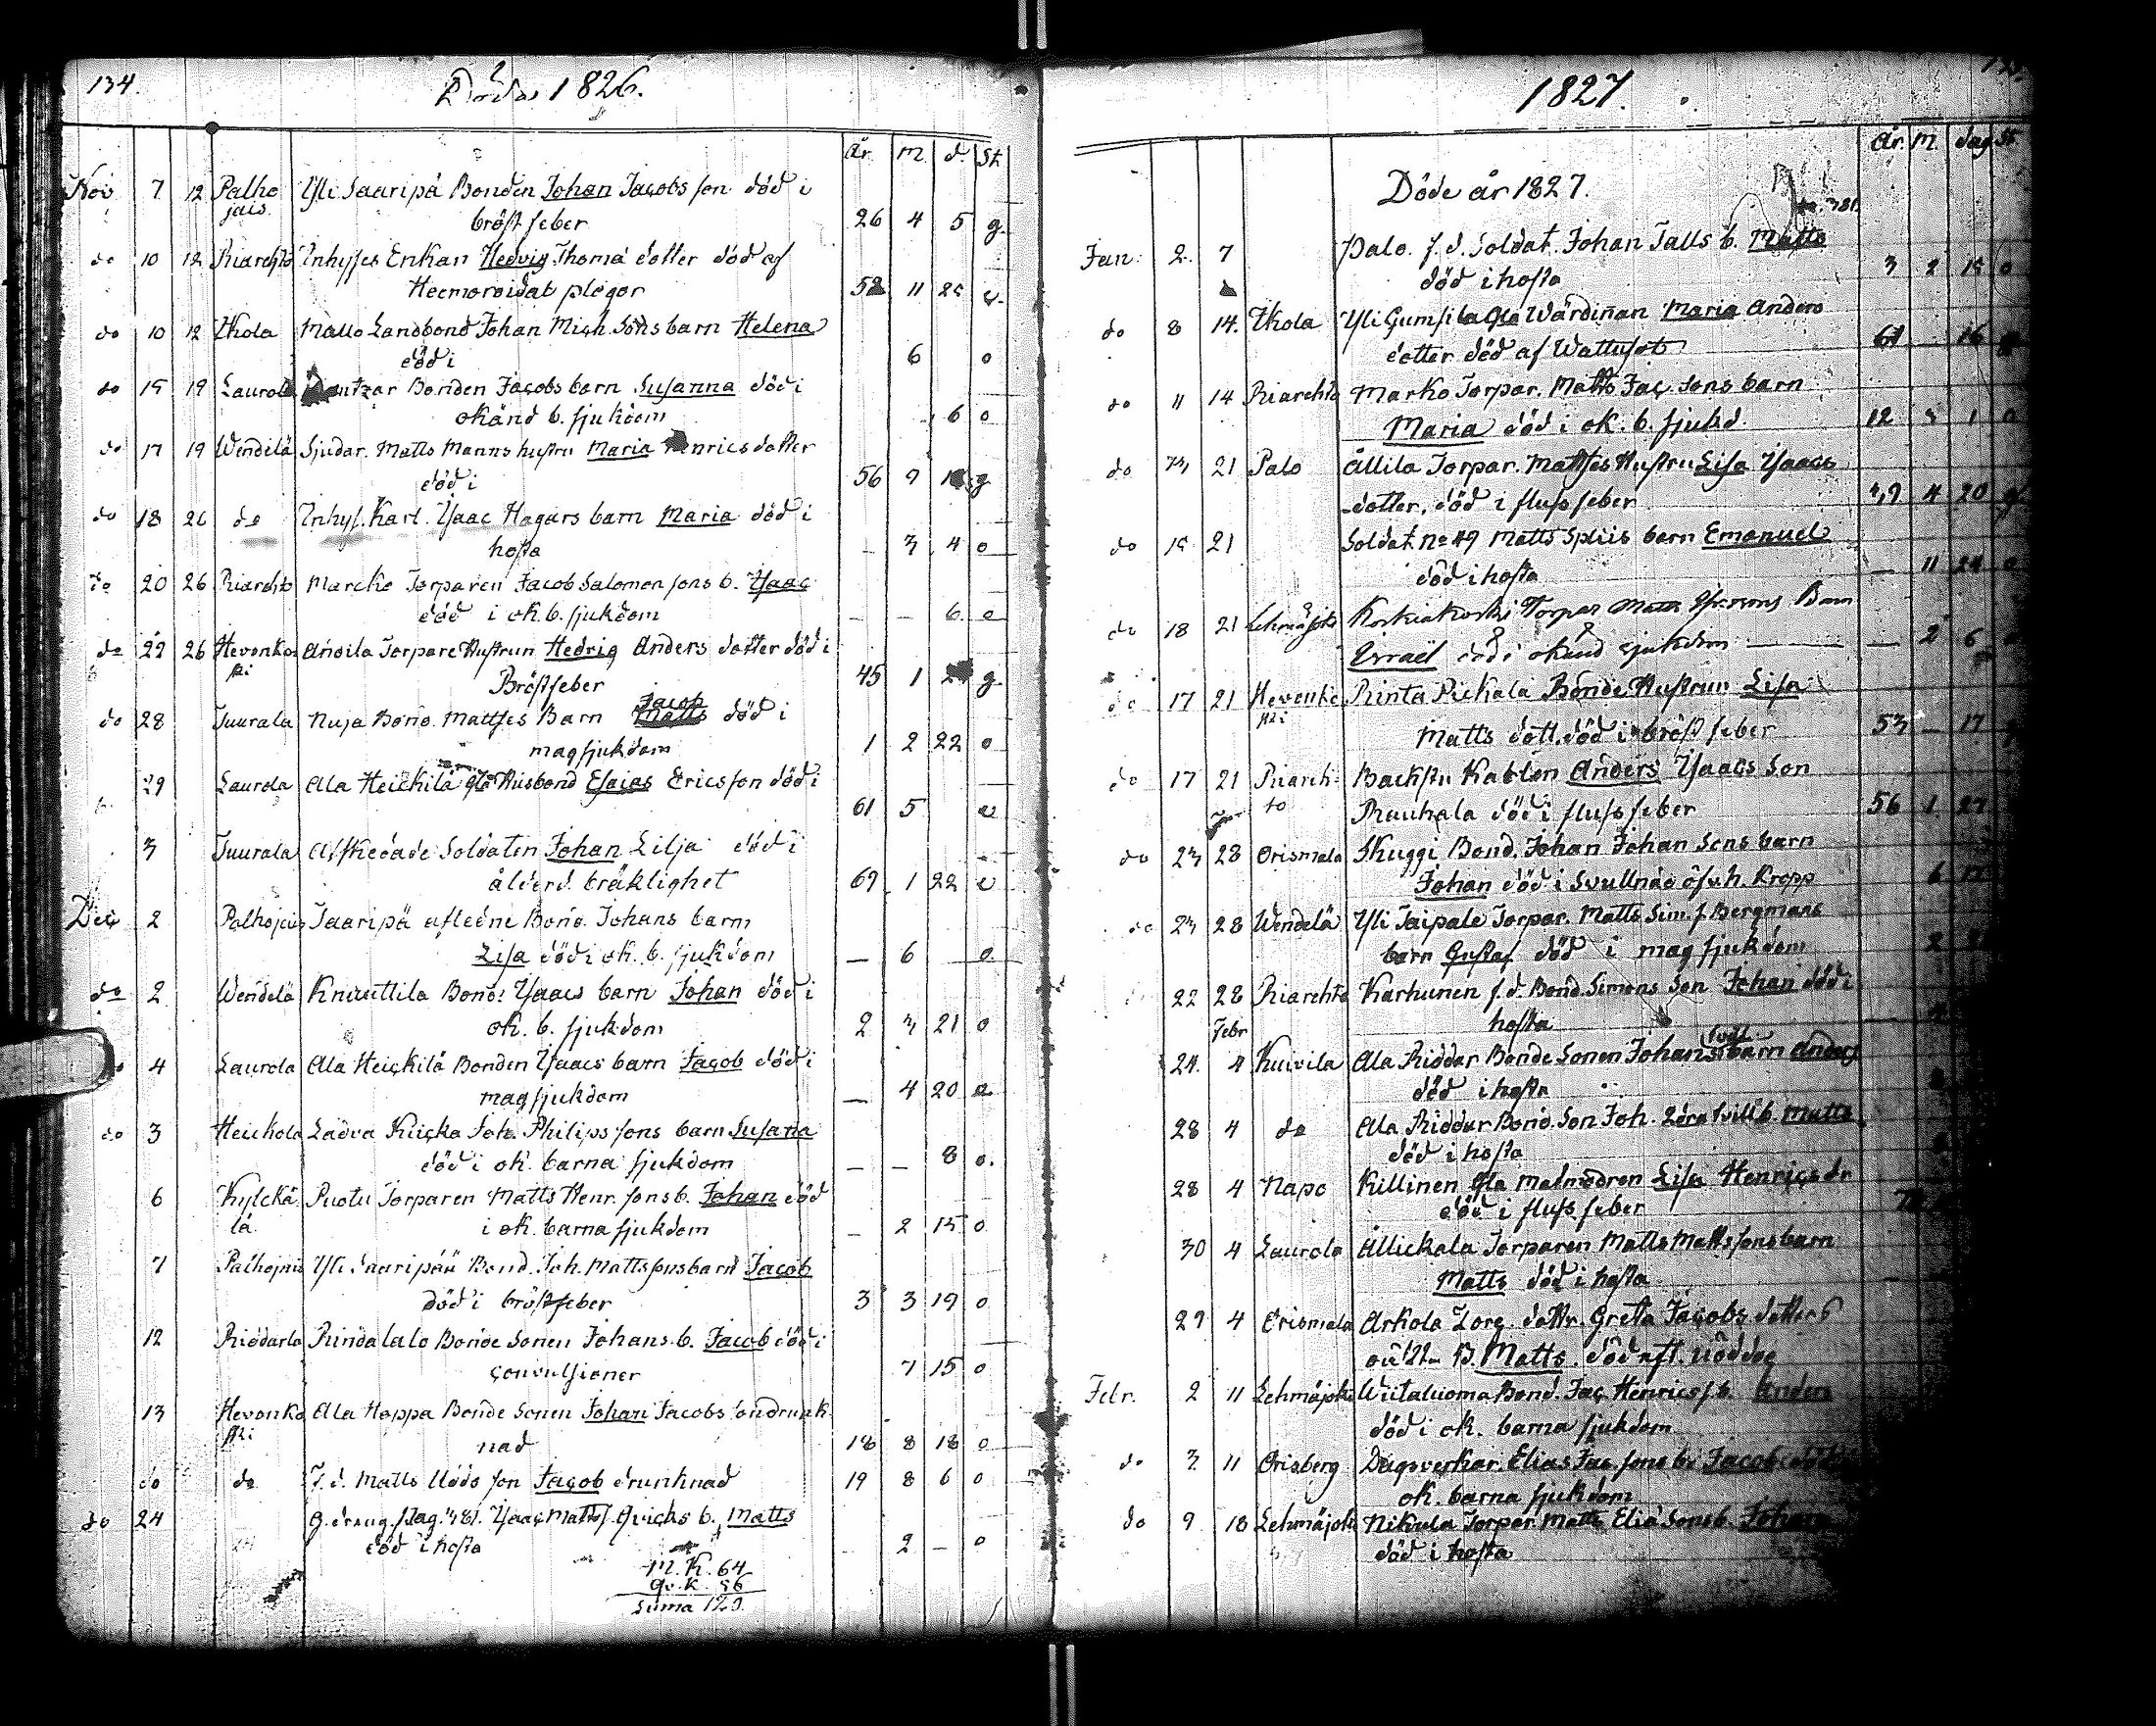 134.
Döde 1826.
År. M. d. St.
Nov 7 12 Palho Yli Saaripä Bonden Johan Jacobs son död i
jais. bröst feber 26 4 5 g.
do 10 12 Kiarchto Inhyses Enkan Hedvig Thomä dotter död af
Hecmoroidal plågor 52 11 25 e.
do 10 12 Ikola Mallo Landbond Johan Mich. Sons barn Helena
död i 6 o
do 15 19 Laurola Bonden Jacobs barn Susanna död i
okänd b. sjukdom 6 o
do 17 19 Wendelä Sjudar. Matts Manns hustru Maria Henrics dotter
död i 56 9 g
do 18 26 do Inhys. Karl. Ysaac Hagars barn Maria död i
hosta – 3 4 o
do 20 26 Kiarchto Marcke Torparen Jacob Salomon sons b. Ysaac
död i ok. b. sjukdom – – 6 o
do 22 26 Hevonko Anoila Torpare Hustrun Hedvig Anders dotter död i
ski Bröstfeber 45 1 g
do 28 Tuurala Nuja Bond. Mattses Barn Jacob död i
magsjukdom 1 2 22 o
29 Laurola Ala Heickilä gla Husbond Esaias Ericsson död i
61 5 e
3 Tuurala Afskedade Soldaten Johan Lilja död i
ålderd. bräklighet 69 1 22 e
Dec 2 Palhojais Saaripä afledne Bond. Johans barn
Lisa död i ok. b. sjukdom – 6 o
do 2 Wendelä Knuuttila Bond: Ysaacs barn Johan död i
ok. b. sjukdom 2 3 21 o
do 4 Laurola Ala Heickilä Bonden Ysaacs barn Jacob död i
magsjukdom – 4 20 o
do 3 Heickola Ladva Kicka Joh. Philips sons barn Susana
död i ok. barna sjukdom – – 8 o.
6 Kylckä Puotu Torparen Matts Henr. sons b. Johan död
lä i ok. barna sjukdom – 2 15 o
7 Palhojais Yli Saaripää Bond. Joh. Mattssons barn Jacob
död i bröstfeber 3 3 19 o
12 Riddarla Rinda lalo Bonde Sonen Johans b. Jacob död i
convulsioner 7 15 o
13 Hevonko Ala Hoppa Bonde Sonen Johan Jacobs son drunk
ski nad 18 8 18 o
do do F. d. Matts Uddo son Jacob drunknad 19 8 6 o
do 24 G. dräng Ysaac Matts s. Qvicks b. Matts
död i hosta – 2 – o
M. K. 64
Qv. K. 56
Suma 120.
1827.
År. M. dag. St.
Döde år 1827.
Jan. 2. 7 Palo. f. d. Soldat. Johan Talls b. Matts
död i hosta 3 2 15 o
do 8 14. Ikola Yli Gumsila gla Wärdinan Maria Anders
dotter död af Wattusot 61 16
do 11 14 Kiarchto Marko Torpar. Matts Jac. Sons barn
Maria död i ok. b. sjukd. 12 1 o
do 13 21 Palo Ållila Torpar. Mattses Hustru Lisa Ysaacs
dotter, död i fluss feber 4 20
do 15 21 Soldat. no 49 Matts Spliis barn Emanuel
död i hosta – 11 24 o
do 18 21 Lehmäjoki Koskiakoski Torpar Matts Barn
Israel död i okänd sjukdom – 2 6
do 17 21 Hevonko Rinta Pickala Bonde Hustrun Lisa
ski Matts dott. död i bröst feber 53 – 17
do 17 21 Kiarch Backstu Karlen Anders Ysaacs Son
to Rauhala död i fluss feber 56 1 27
do 23 28 Orismala Skuggi Bond. Johan Johan Sons barn
Johan död i Svullnad öfvh. Kropp 6
do 23 28 Wendelä Yli Taipale Torpar. Matts Sim. s. Bergmans
barn Gustaf död i mag sjukdom 2
22 28 Kiarchto Karhunen f. d. Bond. Simons Son Johan död i
Febr hosta
24. 4 Kuivila Ala Riddar Bonde Sonen Johans barn Anders
död i hosta
28 4 do Ala Riddar Bond. Son Joh. b. Matts
död i hosta
28 4 Napo Killinen gla Matmodren Lisa Henrics dr
död i fluss feber
30 4 Laurola Ällickala Torparen Matts Matts sons barn
Matts död i hosta
29 4 Orismala Arkola Torp. dottr. Greta Jacobs dotters
B. Matts. död aft. nöddop
Febr. 2 11 Lehmäjoki Wiitaluoma Bond. Jac. Henrics s. b. Anders
död i ok. barna sjukdom
do 3 11 Orisberg Dagsverkar. Elias Jac. sons b. Jacob död
ok. barna sjukdom
do 9 18 Lehmäjoki Nikula Torpar Matts Eliä Sons b. Johan
död i hosta